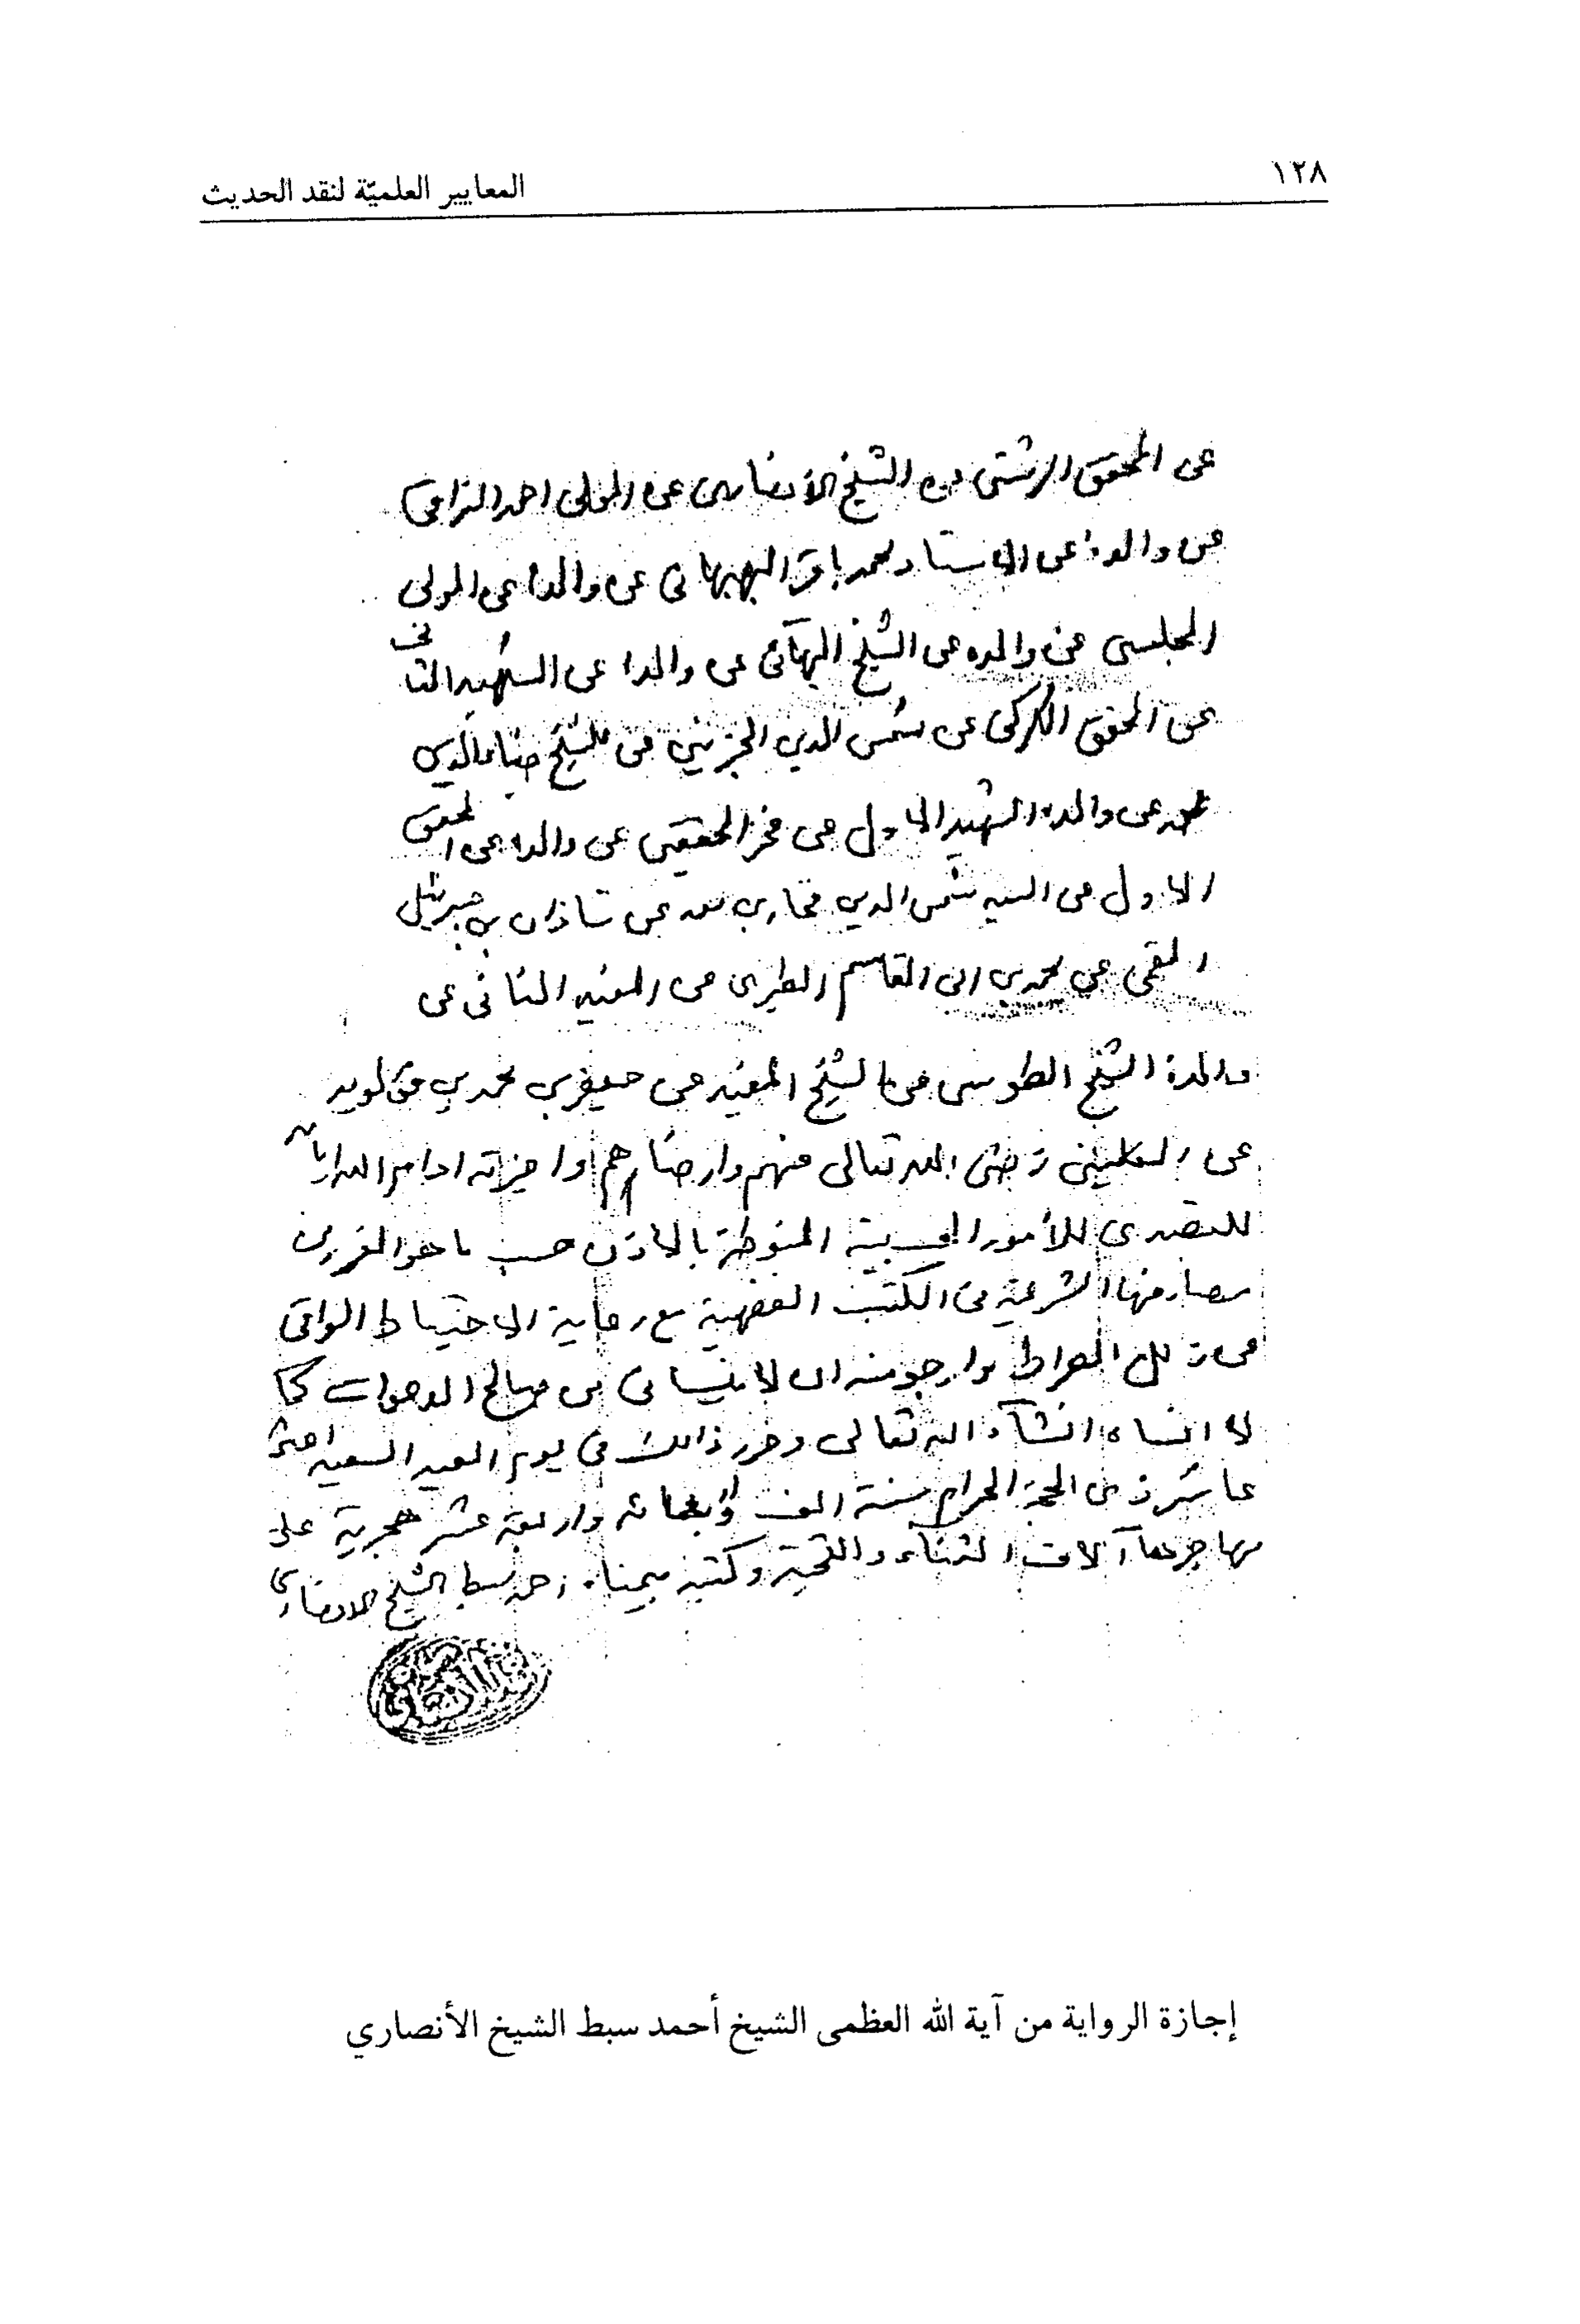 ١٢٨
المعايير العلميّة لنقد الحديث
عن المحقق الرشتي عن الشيخ الأنصاري عن المولى احمد النراقي
عن والده عن الاستاد محمد باقر البهبهاني عن والده عن المولى
المجلسي عن والده عن الشيخ البهائي عن والده عن الشهيد الثاني
عن المحقق الكركي عن شمس الدين الجزيني عن الشيخ ضياء الدين
عن والده الشهيد الاول عن فخر المحققين عن والده عن المحقق
الاول عن السيد شمس الدين فخار بن معد عن شاذان بن جبرئيل
القمي عن محمد بن ابي القاسم الطبري عن المفيد الثاني عن
والده الشيخ الطوسي عن الشيخ المفيد عن جعفر بن محمد بن قولويه
عن الكليني رضي الله تعالى عنهم وارضاهم واجزته ادام الله
للتصدي للأمور الحسبية المنوطة بالاذن حسب ما هو المقرر من
مصارفها الشرعية في الكتب الفقهية مع رعاية الاحتياط الواقي
عن الصراط وارجو منه ان لا ينساني من صالح الدعوات كما
لا انساه انشآء الله تعالى وحرر ذالك في يوم العيد السعيد
عاشر ذي الحجة الحرام سنة الف واربعمائه واربعة عشر هجرية على
مهاجرها آلاف الثناء والتحية وكتبه بيمناه احمد سبط الشيخ الانصاري
إجازة الرواية من آية الله العظمى الشيخ أحمد سبط الشيخ الأنصاري